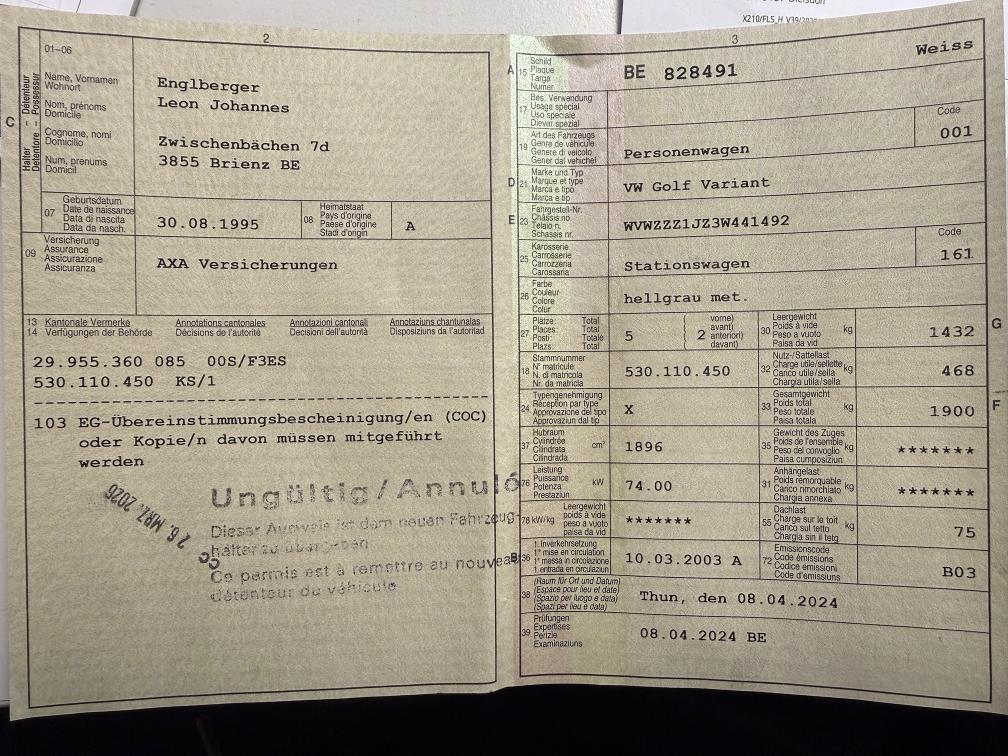 X210/FLS_H
2
01-06
C
Halter - Détenteur
Detentore - Possessur
Name, Vornamen
Wohnort
Nom, prénoms
Domicile
Cognome, nomi
Domicilio
Num, prenums
Domicil
Englberger
Leon Johannes
Zwischenbächen 7d
3855 Brienz BE
07
Geburtsdatum
Date de naissance
Data di nascita
Data da nasch.
30.08.1995
08
Heimatstaat
Pays d'origine
Paese d'origine
Stadi d'origin
A
09
Versicherung
Assurance
Assicurazione
Assicuranza
AXA Versicherungen
13 Kantonale Vermerke Annotations cantonales Annotazioni cantonali Annotaziuns chantunalas
14 Verfügungen der Behörde Décisions de l'autorité Decisioni dell'autorità Disposiziuns da l'autoritad
29.955.360 085 00S/F3ES
530.110.450 KS/1
103 EG-Übereinstimmungsbescheinigung/en (COC)
oder Kopie/n davon müssen mitgeführt
werden
26. MRZ. 2026
Ungültig/Annulé
Dieser Ausweis ist dem neuen Fahrzeug-
halter zu übergeben
Ce permis est à remettre au nouveau
détenteur du véhicule
3
Weiss
A 15
Schild
Plaque
Targa
Numer
BE 828491
17
Bes. Verwendung
Usage spécial
Uso speciale
Diever spezial
19
Art des Fahrzeugs
Genre de véhicule
Genere di veicolo
Gener dal vehichel
Personenwagen
Code
001
D 21
Marke und Typ
Marque et type
Marca e tipo
Marca e tip
VW Golf Variant
E 23
Fahrgestell-Nr.
Châssis no
Telaio n.
Schassis nr.
WVWZZZ1JZ3W441492
25
Karosserie
Carrosserie
Carrozzeria
Carossaria
Stationswagen
Code
161
26
Farbe
Couleur
Colore
Colur
hellgrau met.
27
Plätze: Total
Places: Total
Posti: Totale
Plazs: Total
5
2
vorne)
avant)
anteriori)
davant)
30
Leergewicht
Poids à vide
Peso a vuoto
Paisa da vid
kg
1432
G
18
Stammnummer
N° matricule
N. di matricola
Nr. da matricla
530.110.450
32
Nutz-/Sattellast
Charge utile/sellette
Carico utile/sella
Chargia utila/sella
kg
468
24
Typengenehmigung
Réception par type
Approvazione del tipo
Approvaziun dal tip
X
33
Gesamtgewicht
Poids total
Peso totale
Paisa totala
kg
1900
F
37
Hubraum
Cylindrée
Cilindrata
Cilindrada
cm³
1896
35
Gewicht des Zuges
Poids de l'ensemble
Peso del convoglio
Paisa cumposiziun
kg
*******
76
Leistung
Puissance
Potenza
Prestaziun
kW
74.00
31
Anhängelast
Poids remorquable
Carico rimorchiato
Chargia annexa
kg
*******
78 kW/kg
Leergewicht
poids à vide
peso a vuoto
paisa da vid
*******
55
Dachlast
Charge sur le toit
Carico sul tetto
Chargia sin il tetg
kg
75
B 36
1. Inverkehrsetzung
1re mise en circulation
1a messa in circolazione
1. entrada en circulaziun
10.03.2003 A
72
Emissionscode
Code émissions
Codice emissioni
Code d'emissiuns
B03
38
(Raum für Ort und Datum)
(Espace pour lieu et date)
(Spazio per luogo e data)
(Spazi per lieu e data)
Thun, den 08.04.2024
39
Prüfungen
Expertises
Perizie
Examinaziuns
08.04.2024 BE